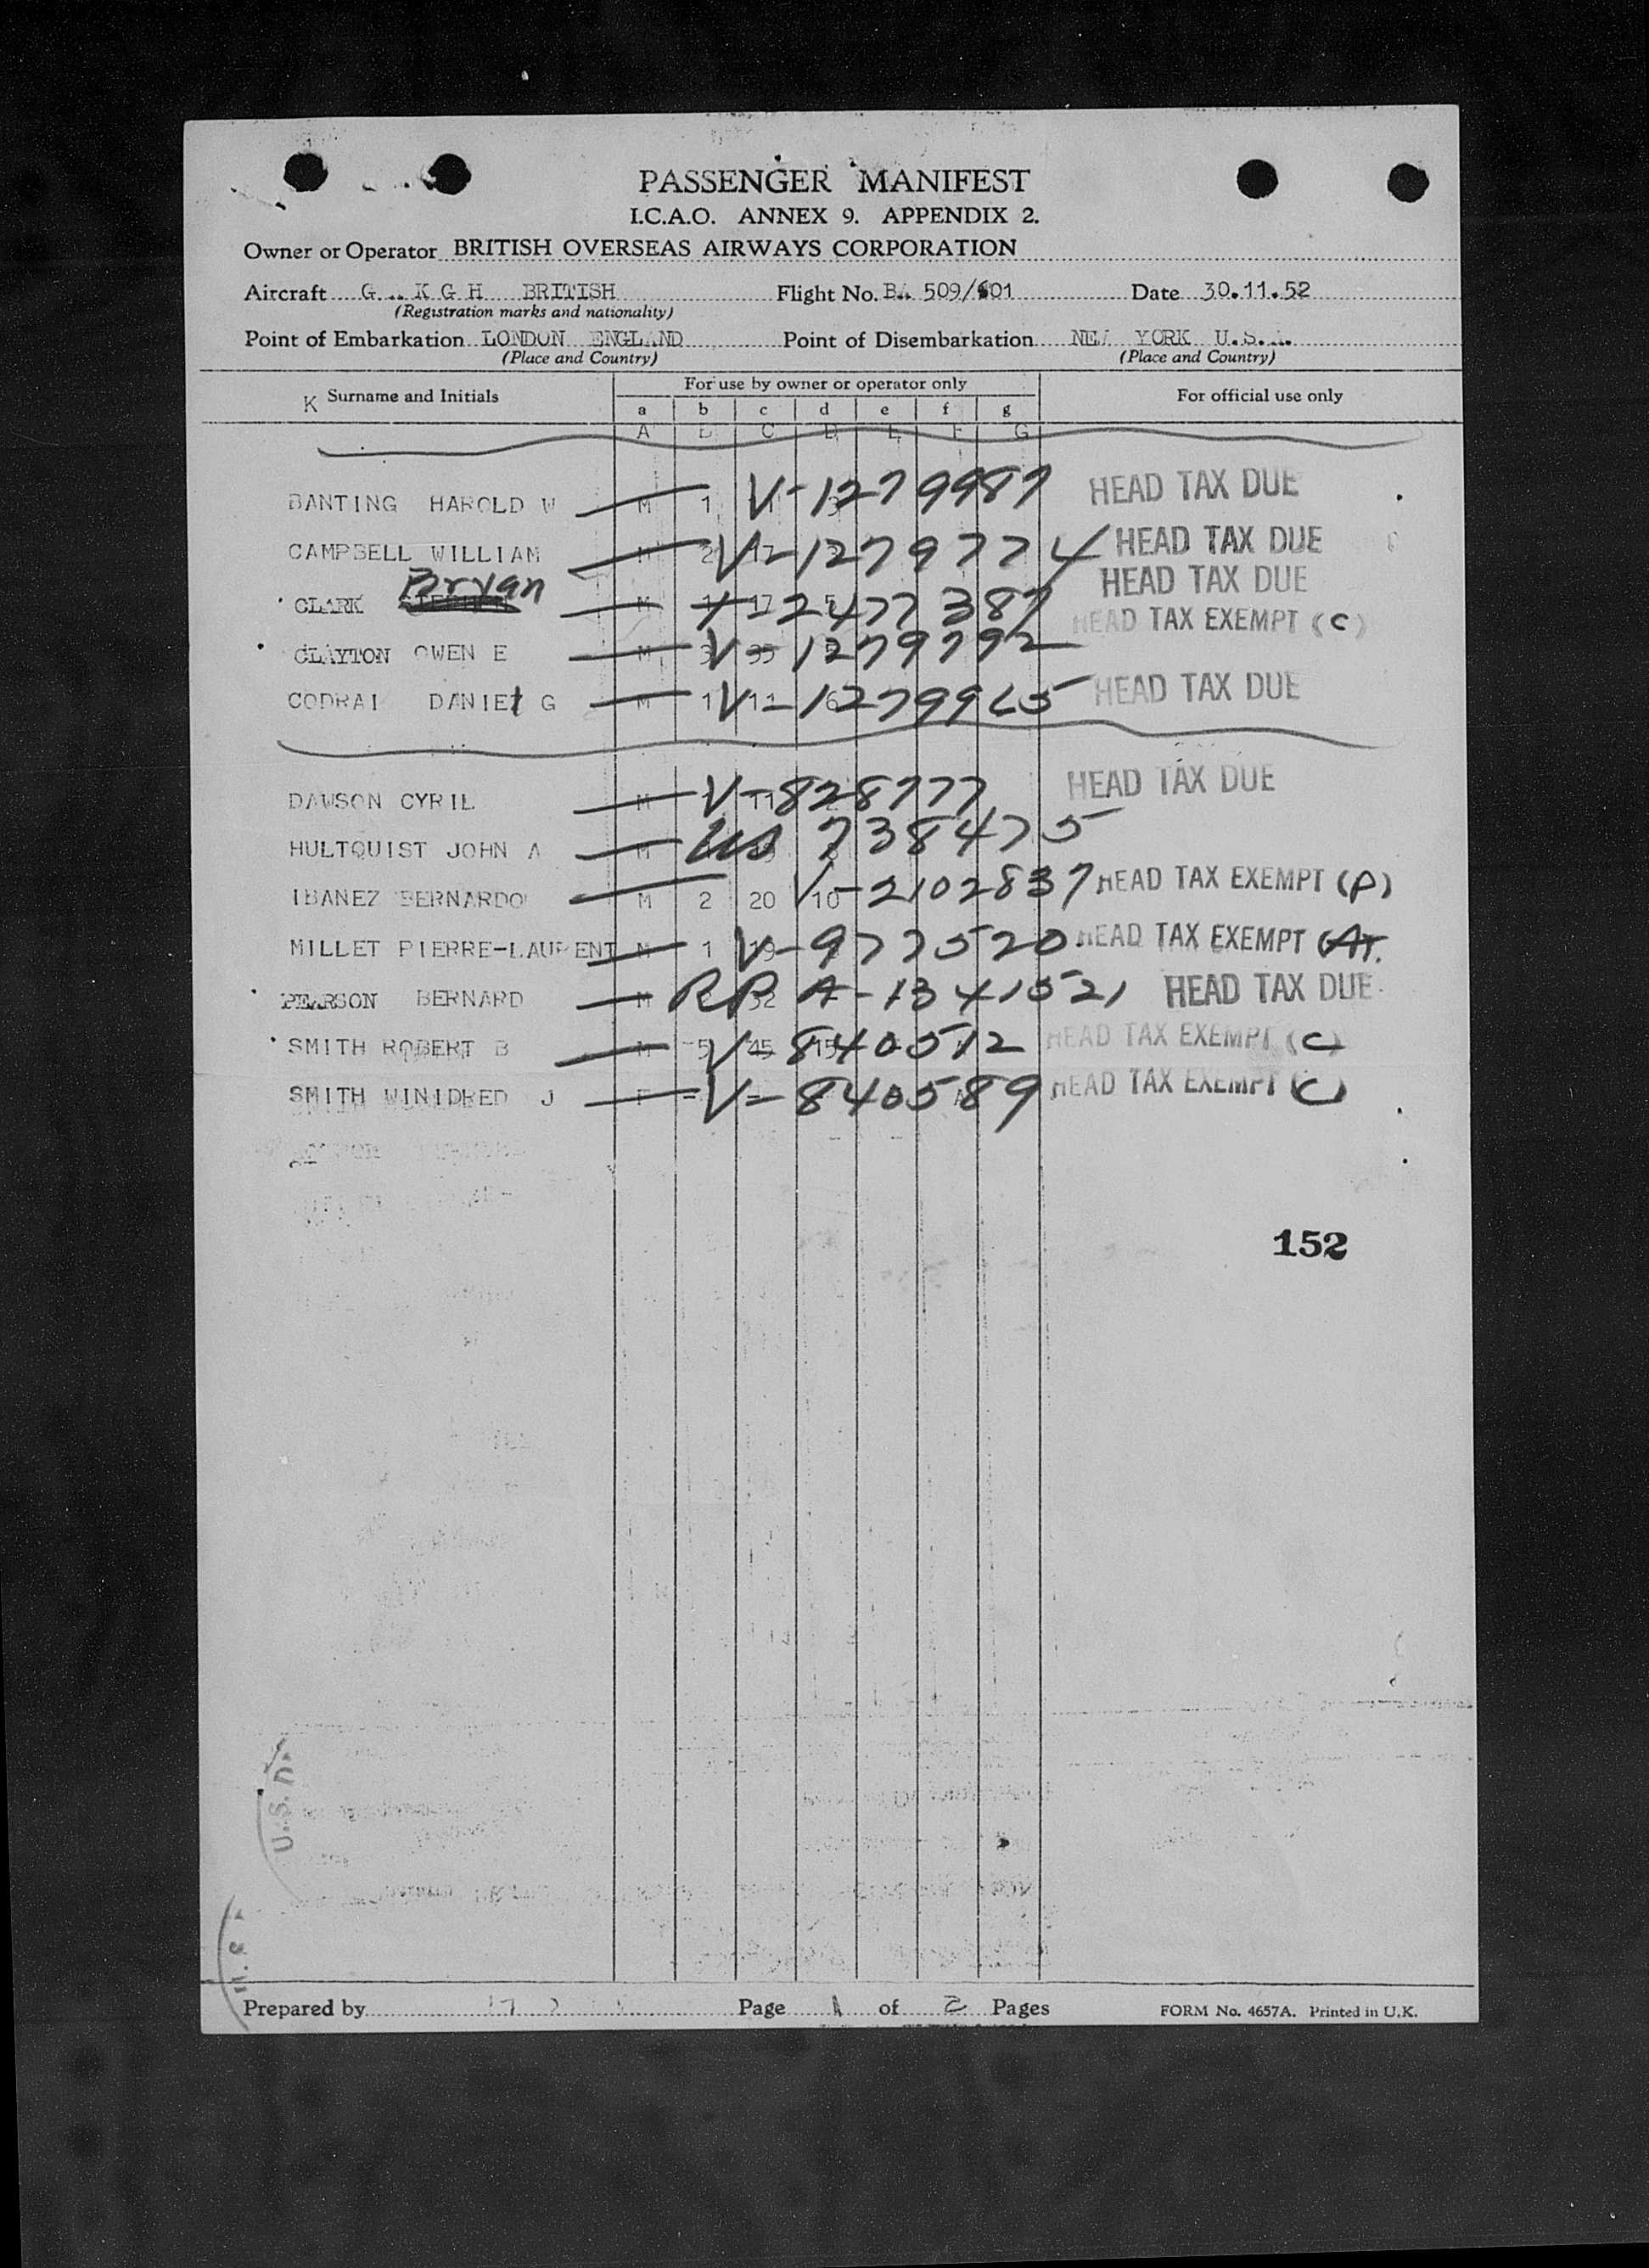 PASSENGER MANIFEST
I.C.A.O. ANNEX 9. APPENDIX 2.
Owner or Operator BRITISH OVERSEAS AIRWAYS CORPORATION
Aircraft G K G H BRITISH Flight No. BA 509/601 Date 30.11.52
(Registration marks and nationality)
Point of Embarkation LONDON ENGLAND Point of Disembarkation NEW YORK U.S.A.
(Place and Country) (Place and Country)
K Surname and Initials For use by owner or operator only For official use only
a b c d e f g
A B C D E F G
BANTING HAROLD W M 1 V-1279987 HEAD TAX DUE
CAMPBELL WILLIAM M 2 17 V-1279774 HEAD TAX DUE
Bryan HEAD TAX DUE
CLARK M 17 5 2477387
HEAD TAX EXEMPT (C)
CLAYTON OWEN E M 3 35 V-1279792
CODRAI DANIEL G M 1 11 6 V-1279965 HEAD TAX DUE
DAWSON CYRIL M 11 V-828777 HEAD TAX DUE
HULTQUIST JOHN A M US 738475
IBANEZ BERNARDO M 2 20 10 V-2102837 HEAD TAX EXEMPT (P)
MILLET PIERRE-LAURENT M 1 V-977520 HEAD TAX EXEMPT
PEARSON BERNARD M 32 RP A-1341521 HEAD TAX DUE
SMITH ROBERT B M 5 45 15 V-840512 HEAD TAX EXEMPT (C)
SMITH WINIDRED J F V-840589 HEAD TAX EXEMPT (C)
152
Prepared by Page 1 of 2 Pages FORM No. 4657A. Printed in U.K.